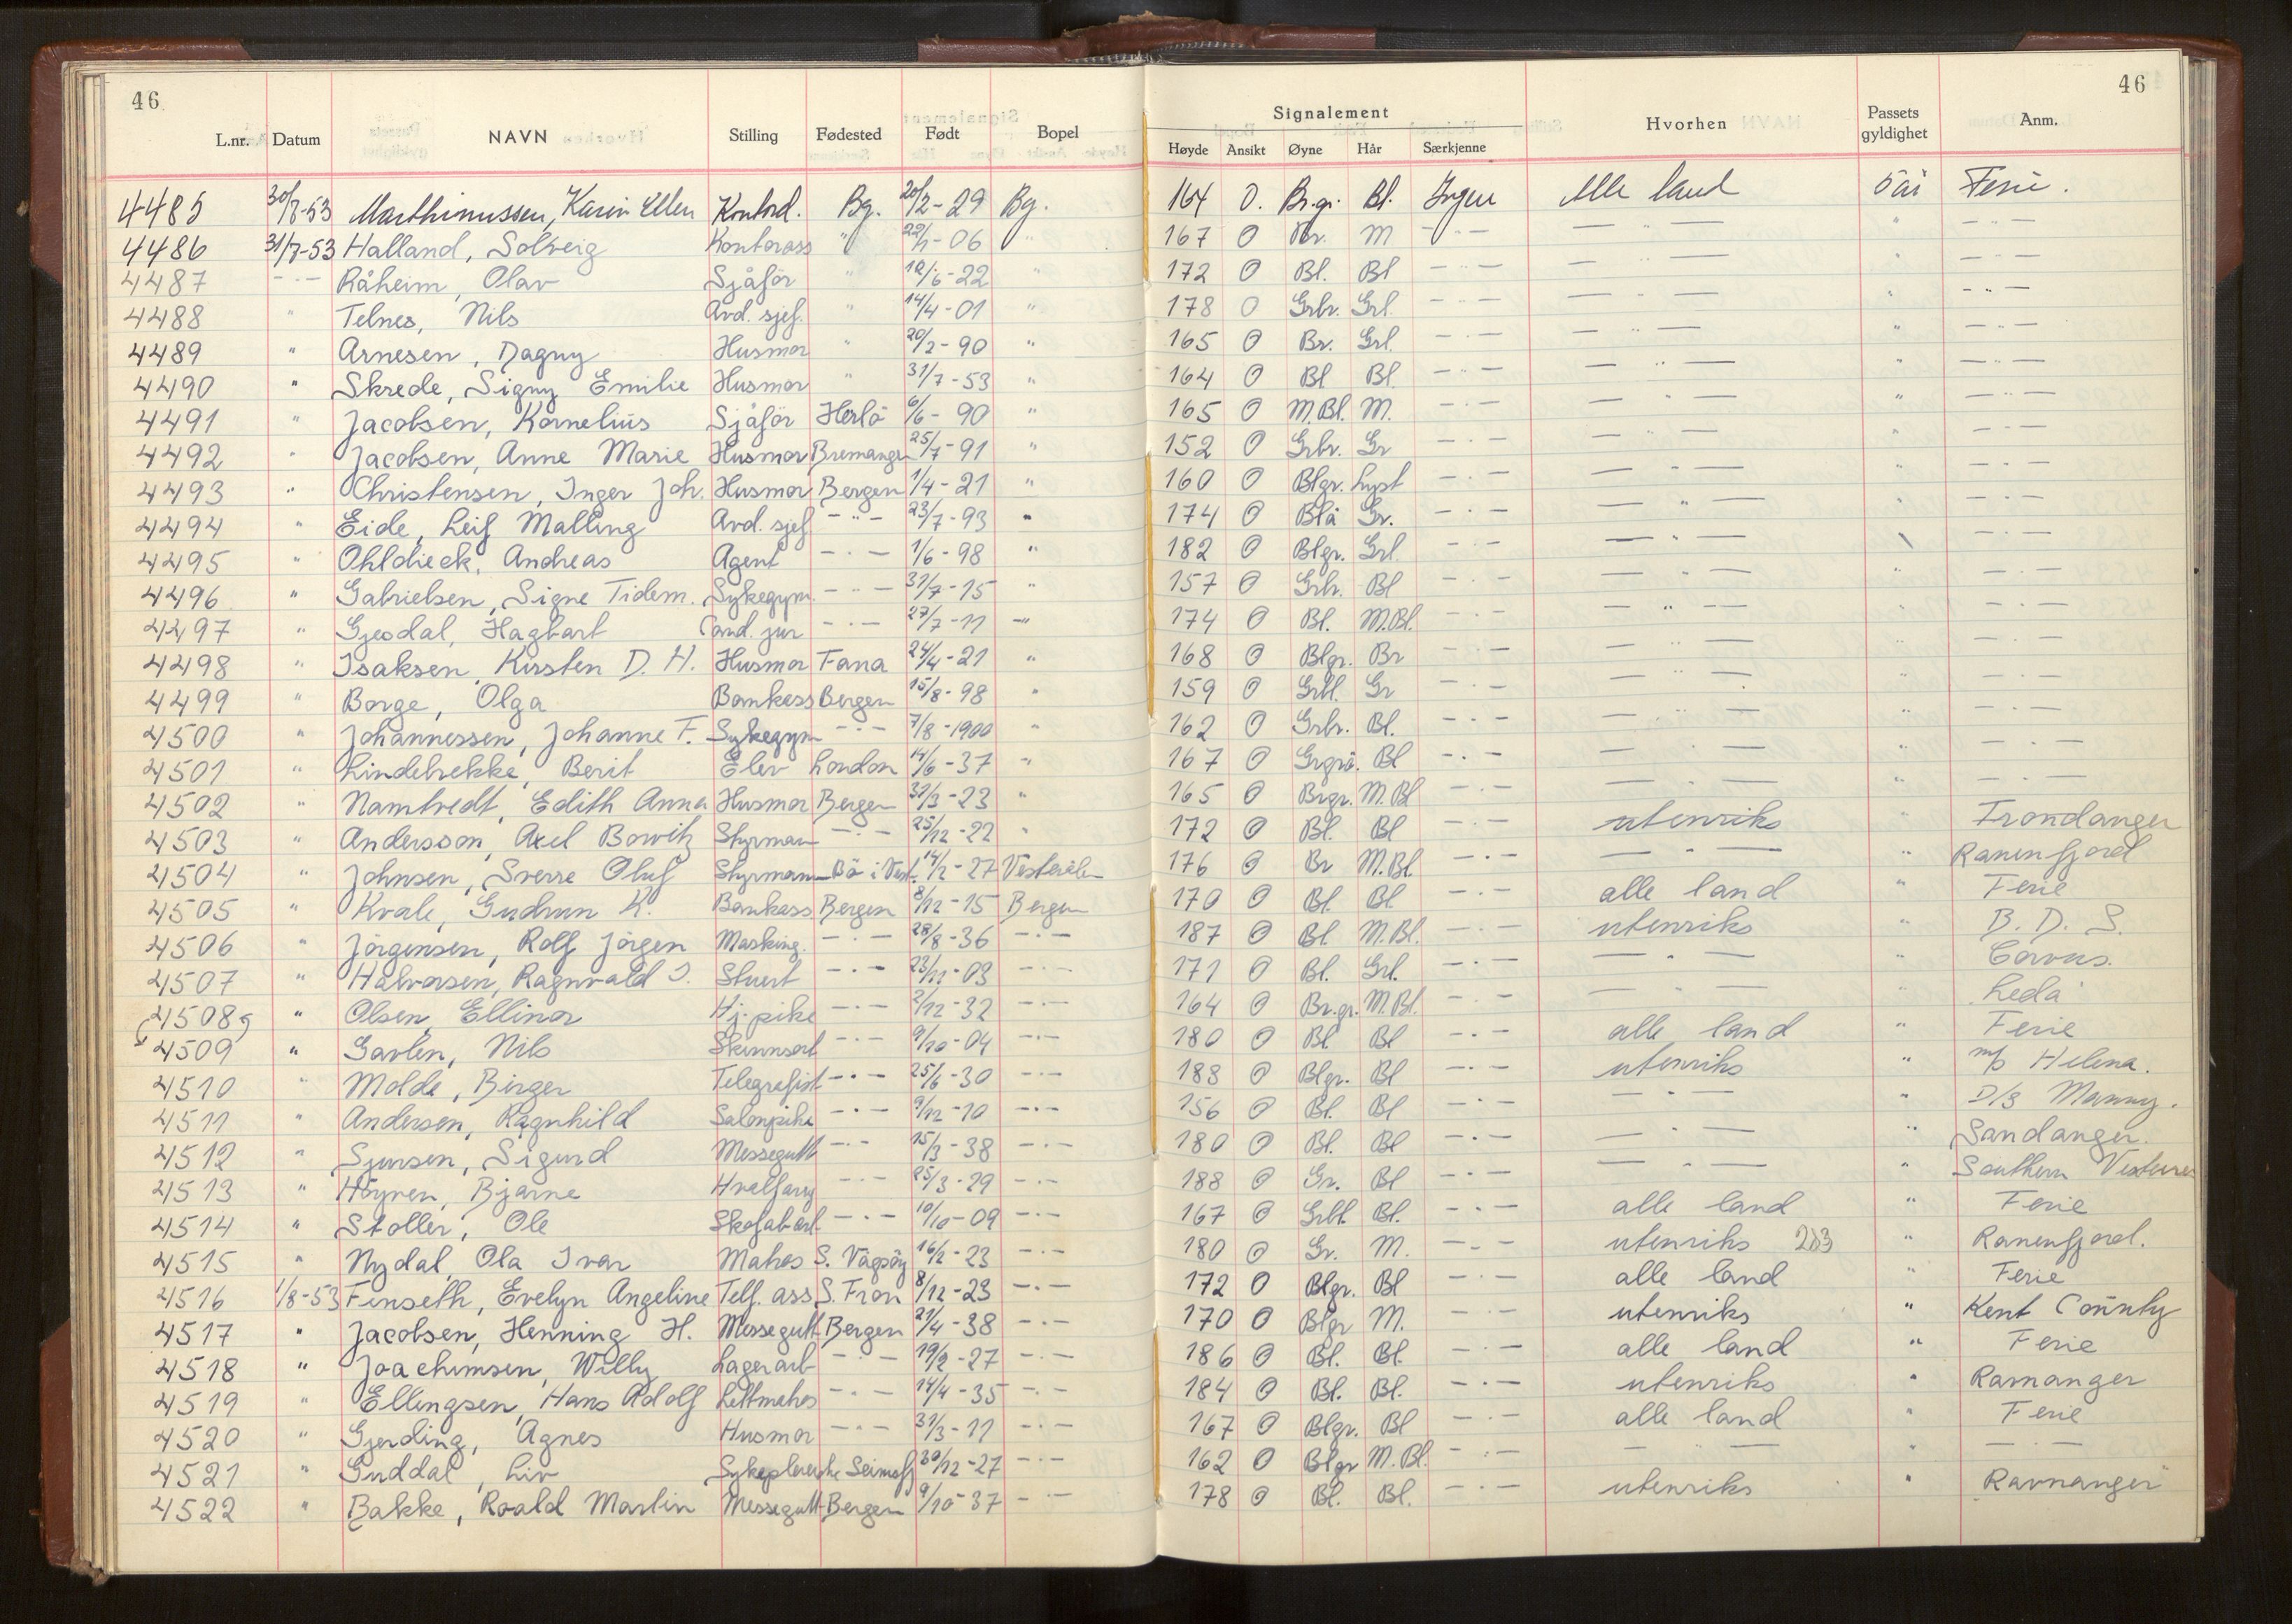 46
46
L.nr. Datum NAVN Stilling Fødested Født Bopel Signalement Høyde Ansikt Øyne Hår Særkjenne Hvorhen Passets gyldighet Anm.
4485 30/7-53 Marthinussen, Karin Ellen Kontord. Bg. 20/2-29 Bg. 164 O. Br.gr. Bl. Ingen Alle land 5 år Ferie.
4486 31/7-53 Halland, Solveig Kontorass " 22/1-06 " 167 O Br. M -"- — " — " -"-
4487 -"- Råheim, Olav Sjåfør " 12/6-22 " 172 O Bl. Bl -"- — " — " -"-
4488 " Telnes, Nils Avd. sjef. " 14/4-01 " 178 O Grbr. Grl. -"- — " — " -"-
4489 " Arnesen, Dagny Husmor " 20/2-90 " 165 O Br. Grl. -"- — " — " -"-
4490 " Skrede, Signy Emilie Husmor " 31/7-53 " 164 O Bl Bl. -"- — " — " -"-
4491 " Jacobsen, Kornelius Sjåför Herlö 6/6-90 " 165 O M.Bl. M. -"- — " — " -"-
4492 " Jacobsen, Anne Marie Husmor Bremanger 25/7-91 " 152 O Grbr. Gr -"- — " — " -"-
4493 " Christensen, Inger Joh. Husmor Bergen 1/4-21 " 160 O Blgr. Lyst -"- — " — " -"-
4494 " Eide, Leif Malling Avd. sjef -"- 23/7-93 " 174 O Blå Gr. -"- — " — " -"-
4495 " Ohldieck, Andreas Agent -"- 1/6-98 " 182 O Blgr. Grl -"- — " — \ -"-
4496 " Gabrielsen, Signe Tidem. Sykegym. -"- 31/7-15 " 157 O Grbr. Bl -"- — " — " -"-
4497 " Gjesdal, Hagbart Cand. jur -"- 27/7-11 -"- 174 O Bl. M.Bl. -"- — " — " -"-
4498 " Isaksen, Kirsten D. H. Husmor Fana 24/4-21 " 168 O Blgr. Br -"- — " — " -"-
4499 " Borge, Olga Bankass Bergen 15/8-98 " 159 O Grbl. Gr -"- — " — " -"-
4500 " Johannessen, Johanne F. Sykegym -"- 7/8-1900 " 162 O Grbr. Bl. -"- — " — " -"-
4501 " Lindebrekke, Berit Elev London 14/6-37 " 167 O Grgrö. Bl -"- — " — " -"-
4502 " Namtvedt, Edith Anna Husmor Bergen 31/3-23 " 165 O Brgr. M.Bl -"- — " — " -"-
4503 " Andersson, Axel Borvitz Styrman -"- 25/12-22 " 172 O Bl. Bl -"- utenriks " Trondanger
4504 " Johnsen, Sverre Oluf Styrmann Bö i Vest. 14/2-27 Vesterålen 176 O Br M.Bl. -"- — " — " Ranenfjord
4505 " Kvale, Gudrun K. Bankass Bergen 8/12-15 Bergen 170 O Bl. Bl -"- alle land " Ferie
4506 " Jörgensen, Rolf Jörgen Masking. -"- 28/8-36 -"- 187 O Bl M.Bl. -"- utenriks " B. D. S.
4507 " Halvorsen, Ragnvald I. Stuert -"- 23/11-03 -"- 171 O Bl. Grl. -"- — " — " Corvus.
4508 " Olsen, Ellinor Hj. pike -"- 2/12-32 -"- 164 O Br.gr. M.Bl. -"- — " — " Leda
4509 " Garlen, Nils -"- 9/10-04 -"- 180 O Bl Bl -"- alle land " Ferie
4510 " Molde, Birger Telegrafist -"- 25/6-30 -"- 188 O Blgr. Bl -"- utenriks " m/s Helena.
4511 " Andersen, Ragnhild Salongpike -"- 9/12-10 -"- 156 O Bl. Bl -"- — " — " D/S Manny.
4512 " Sjursen, Sigurd Messegutt -"- 15/3-38 -"- 180 O Bl. Bl -"- — " — " Sandanger.
4513 " Höyven, Bjarne Hvalfang -"- 25/3-29 -"- 188 O Gr. Bl -"- — " — " Southern Venturer
4514 " Stoller, Ole Skofab.arb. -"- 10/10-09 -"- 167 O Grbl. Bl. -"- alle land " Ferie
4515 " Nydal, Ola Ivar Matros S. Vågsöy 16/2-23 -"- 180 O Gr. M. -"- utenriks 283 " Ranenfjord.
4516 1/8-53 Finseth, Evelyn Angeline Telf. ass S. Fron 8/12-23 -"- 172 O Blgr. Bl -"- alle land " Ferie
4517 " Jacobsen, Henning H. Messegutt Bergen 21/4-38 -"- 170 O Blgr M. -"- utenriks " Kent County
4518 " Joachimsen, Willy Lagerarb -"- 19/2-27 -"- 186 O Bl. Bl. -"- alle land " Ferie
4519 " Ellingsen, Hans Adolf Lettmatros -"- 14/4-35 -"- 184 O Bl. Bl. -"- utenriks " Ramanger
4520 " Gjerding, Agnes Husmor -"- 31/3-11 -"- 167 O Blgr. Bl -"- alle land " Ferie
4521 " Guddal, Liv Sykepleierske Seimsfj 30/12-27 -"- 162 O Blgr M.Bl. -"- — " — " -"-
4522 " Bakke, Roald Martin Messegutt Bergen 9/10-37 -"- 178 O Bl. Bl. -"- utenriks " Ravnanger